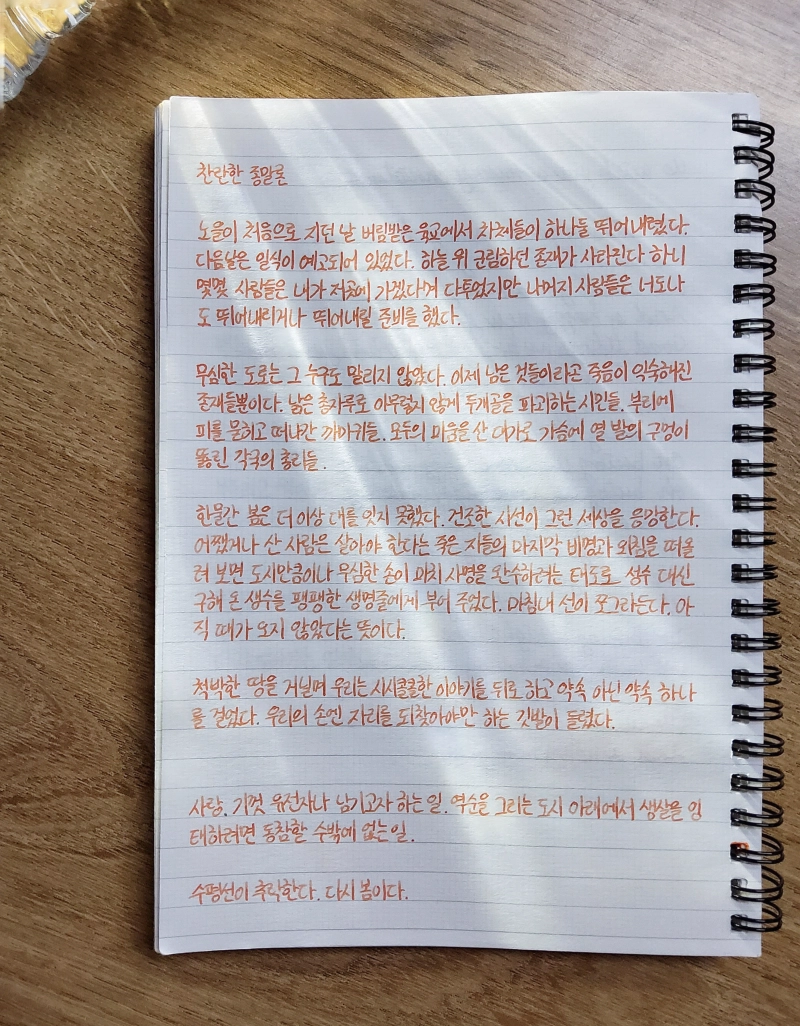 찬란한 종말론
노을이 처음으로 지던 날 버림받은 육교에서 차체들이 하나둘 뛰어내렸다.
다음날은 일식이 예고되어 있었다. 하늘 위 군림하던 존재가 사라진다 하니
몇몇 사람들은 내가 저곳에 가겠다며 다투었지만 나머지 사람들은 너도나
도 뛰어내리거나 뛰어내릴 준비를 했다.
무심한 도로는 그 누구도 말리지 않았다. 이제 남은 것들이라곤 죽음이 익숙해진
존재들뿐이다. 낡은 총자루로 아무렇지 않게 두개골을 파괴하는 시민들. 부리에
피를 묻히고 떠나간 까마귀들. 모두의 미움을 산 대가로 가슴에 열 발의 구멍이
뚫린 각국의 총리들.
한물간 봄은 더 이상 대를 잇지 못했다. 건조한 시선이 그런 세상을 응강한다.
어쨌거나 산 사람은 살아야 한다는 죽은 자들의 마지막 비명과 외침을 떠올
려 보면 도시만큼이나 무심한 손이 마치 사명을 완수하려는 태도로 성수 대신
구해 온 생수를 팽팽한 생명줄에게 부어 주었다. 마침내 선이 쪼그라든다. 아
직 때가 오지 않았다는 뜻이다.
척박한 땅을 거닐며 우리는 시시콜콜한 이야기를 뒤로 하고 약속 아닌 약속 하나
를 걸었다. 우리의 손엔 자리를 되찾아야만 하는 깃발이 들렸다.
사랑. 기껏 유전자나 남기고자 하는 일. 역순을 그리는 도시 아래에서 생살을 잉
태하려면 동참할 수밖에 없는 일.
수평선이 추락한다. 다시 봄이다.